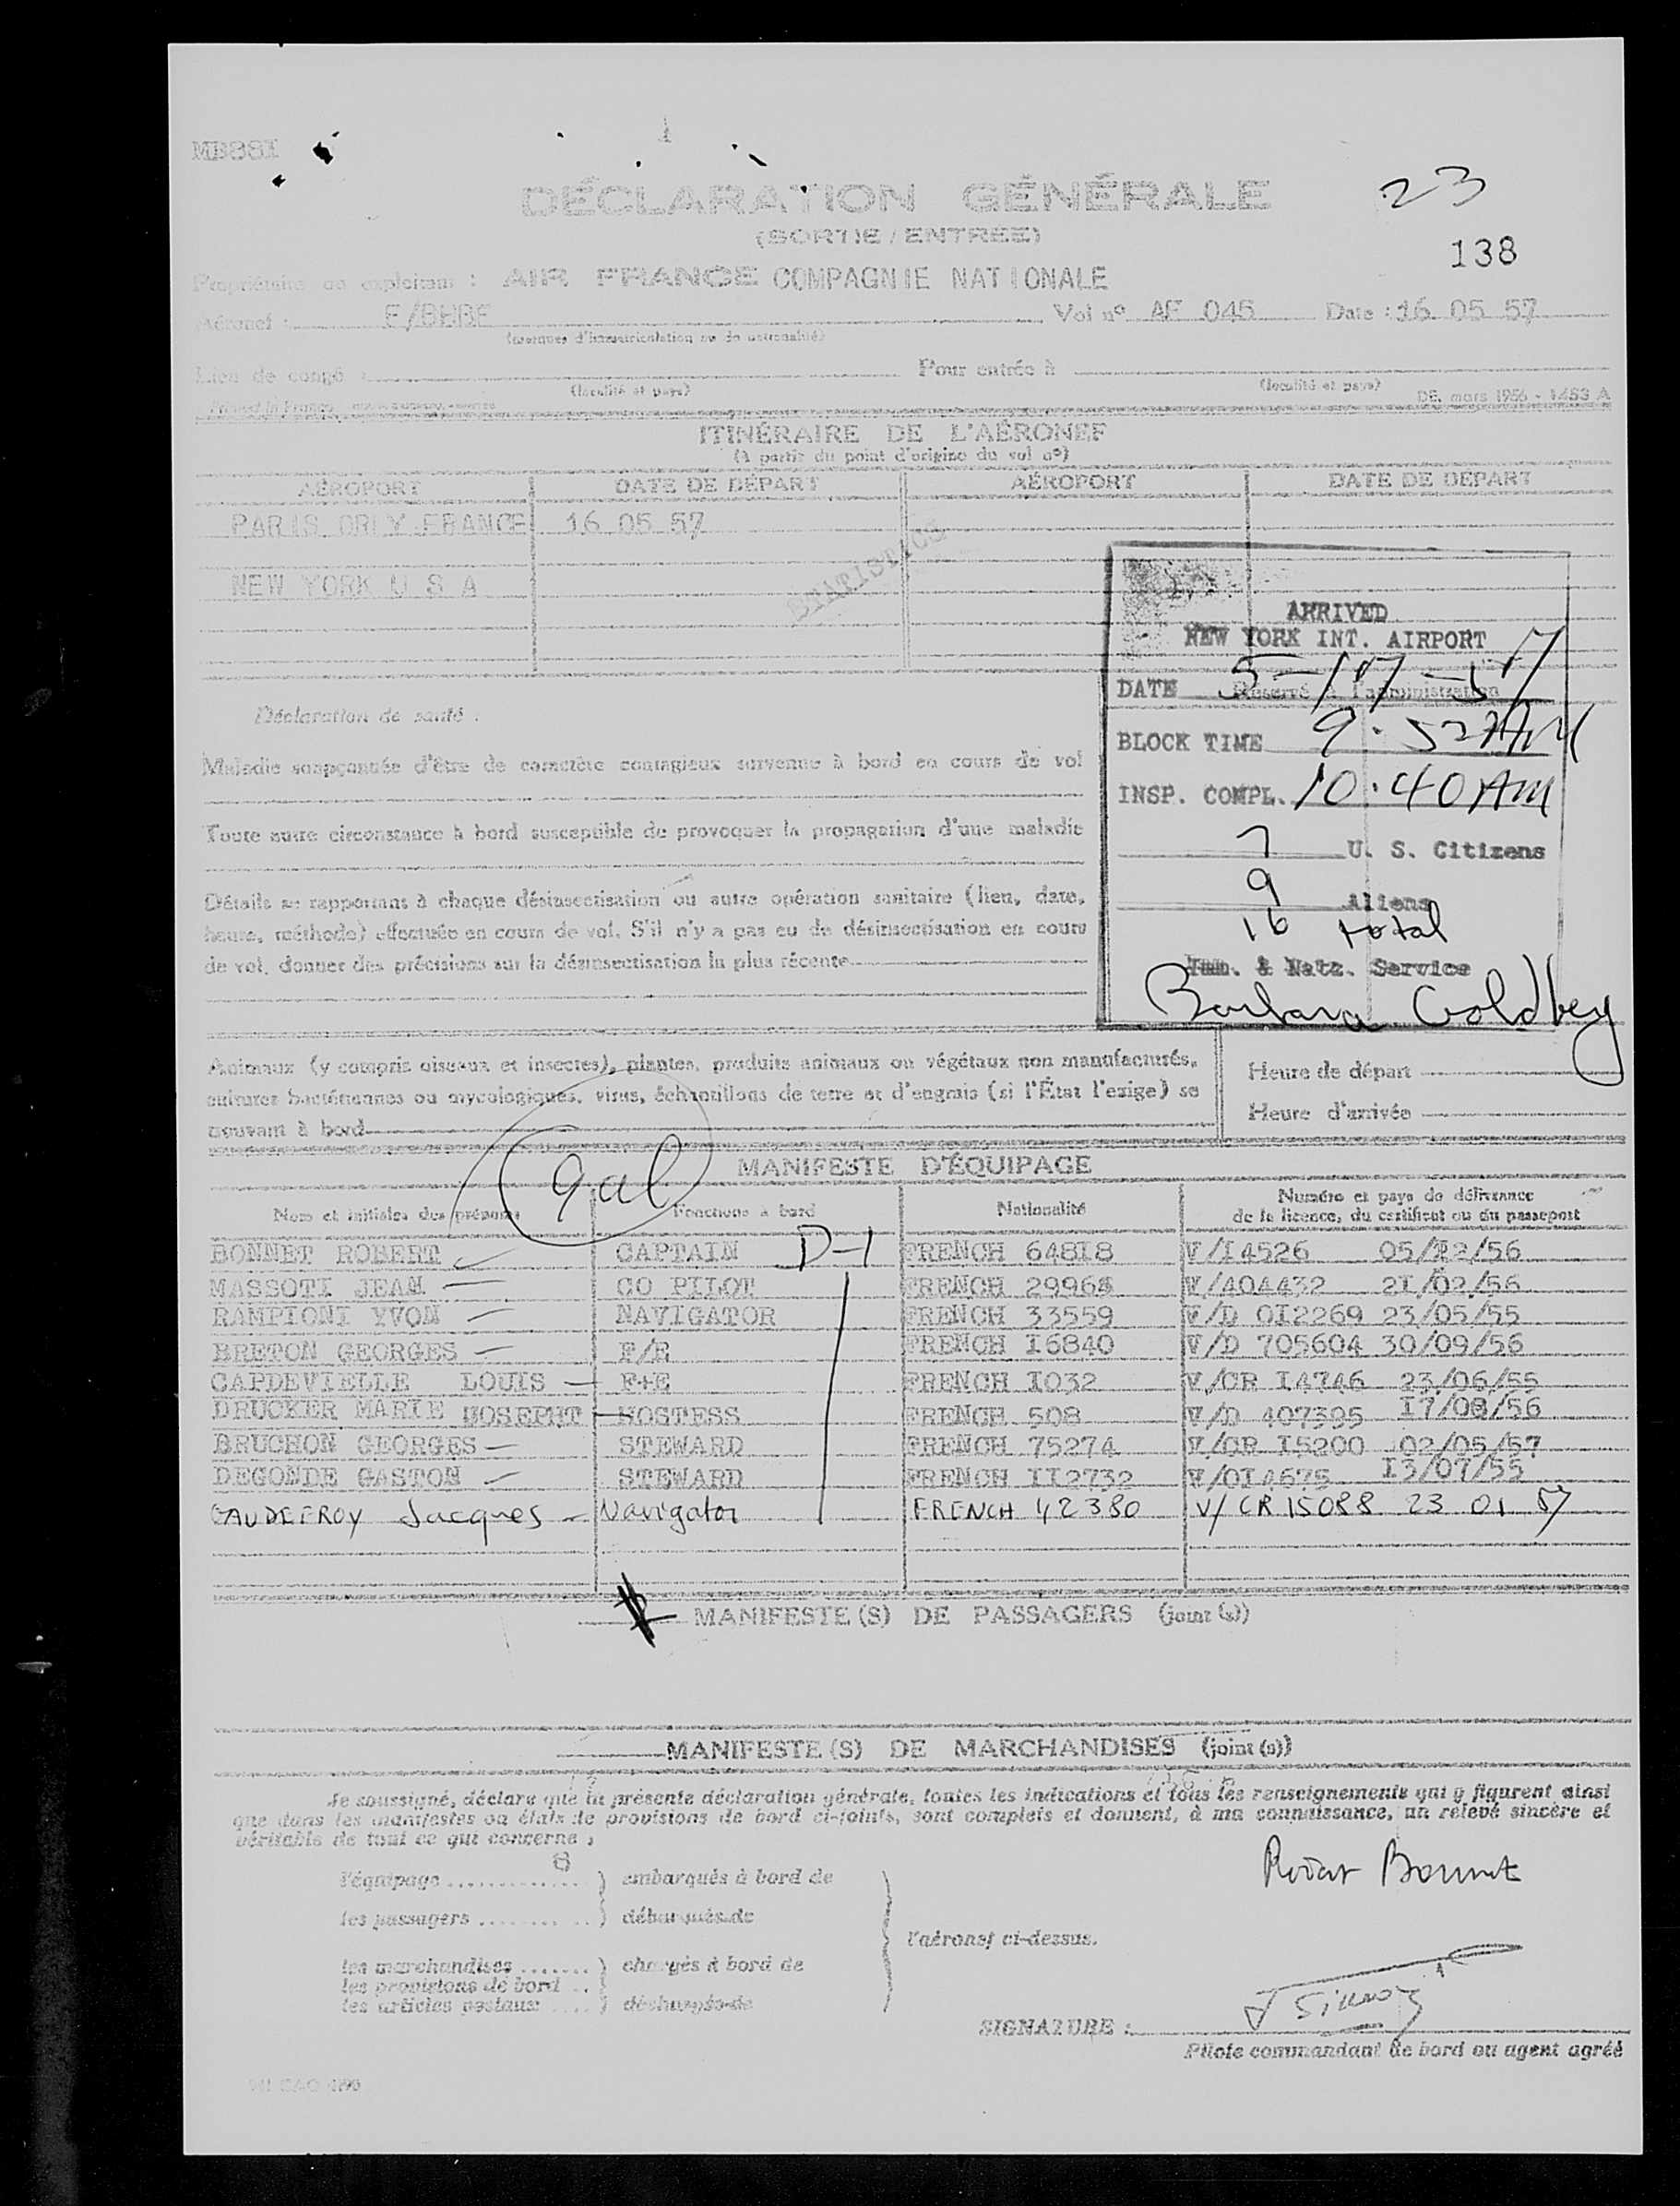 MB88I
1
DÉCLARATION GÉNÉRALE
23
(SORTIE / ENTRÉE)
138
Propriétaire ou exploitant : AIR FRANCE COMPAGNIE NATIONALE
Aéronef : F/BHBF Vol nº AF 045 Date : 16 05 57
(marques d'immatriculation ou de nationalité)
Lieu de congé : Pour entrée à
(localité et pays) (localité et pays)
Printed in France DE. mars 1956 - 1453 A
ITINÉRAIRE DE L'AÉRONEF
(A partir du point d'origine du vol nº)
AÉROPORT DATE DE DÉPART AÉROPORT DATE DE DÉPART
PARIS ORLY FRANCE 16 05 57
STATISTICS
NEW YORK U S A
ARRIVED
NEW YORK INT. AIRPORT
DATE 5-17-57
Réservé à l'administration
BLOCK TIME 9.52 AM
INSP. COMPL. 10.40 AM
7 U. S. Citizens
9 Aliens
16 total
Imm. & Natz. Service
Barbara Goldberg
Déclaration de santé :
Maladie soupçonnée d'être de caractère contagieux survenue à bord en cours de vol
Toute autre circonstance à bord susceptible de provoquer la propagation d'une maladie
Détails se rapportant à chaque désinsectisation ou autre opération sanitaire (lieu, date,
heure, méthode) effectuée en cours de vol. S'il n'y a pas eu de désinsectisation en cours
de vol, donner des précisions sur la désinsectisation la plus récente
Animaux (y compris oiseaux et insectes), plantes, produits animaux ou végétaux non manufacturés,
cultures bactériennes ou mycologiques, virus, échantillons de terre et d'engrais (si l'État l'exige) se
trouvant à bord
Heure de départ
Heure d'arrivée
9 al
MANIFESTE D'ÉQUIPAGE
Nom et initiales des prénoms Fonctions à bord Nationalité Numéro et pays de délivrance
de la licence, du certificat ou du passeport
BONNET ROBERT CAPTAIN D-1 FRENCH 648I8 V/I4526 05/I2/56
MASSOTI JEAN CO PILOT FRENCH 29964 V/404432 2I/02/56
RAMPIONI YVON NAVIGATOR FRENCH 33559 V/D 0I2269 23/05/55
BRETON GEORGES F/E FRENCH I6840 V/D 705604 30/09/56
CAPDEVIELLE LOUIS F+E FRENCH I032 V/CR I4746 23/06/55
DRUCKER MARIE HOSEPHT HOSTESS FRENCH 508 V/D 407395 I7/08/56
BRUCHON GEORGES STEWARD FRENCH 75274 V/CR I5200 02/05/57
DEGONDE GASTON STEWARD FRENCH II2732 V/0I4675 I3/07/55
GAUDEFROY Jacques Navigator FRENCH 42380 V/CR 15088 23 01 57
MANIFESTE (S) DE PASSAGERS (joint (s))
MANIFESTE (S) DE MARCHANDISES (joint (s))
Je soussigné, déclare que la présente déclaration générale, toutes les indications et tous les renseignements qui y figurent ainsi
que dans les manifestes ou états de provisions de bord ci-joints, sont complets et donnent, à ma connaissance, un relevé sincère et
véritable de tout ce qui concerne :
l'équipage ............. 8 ) embarqués à bord de
les passagers ........... ) débarqués de
l'aéronef ci-dessus.
les marchandises ....... ) chargés à bord de
les provisions de bord ..
les articles postaux .... ) déchargés de
Robert Bonnet
SIGNATURE :
Pilote commandant de bord ou agent agréé